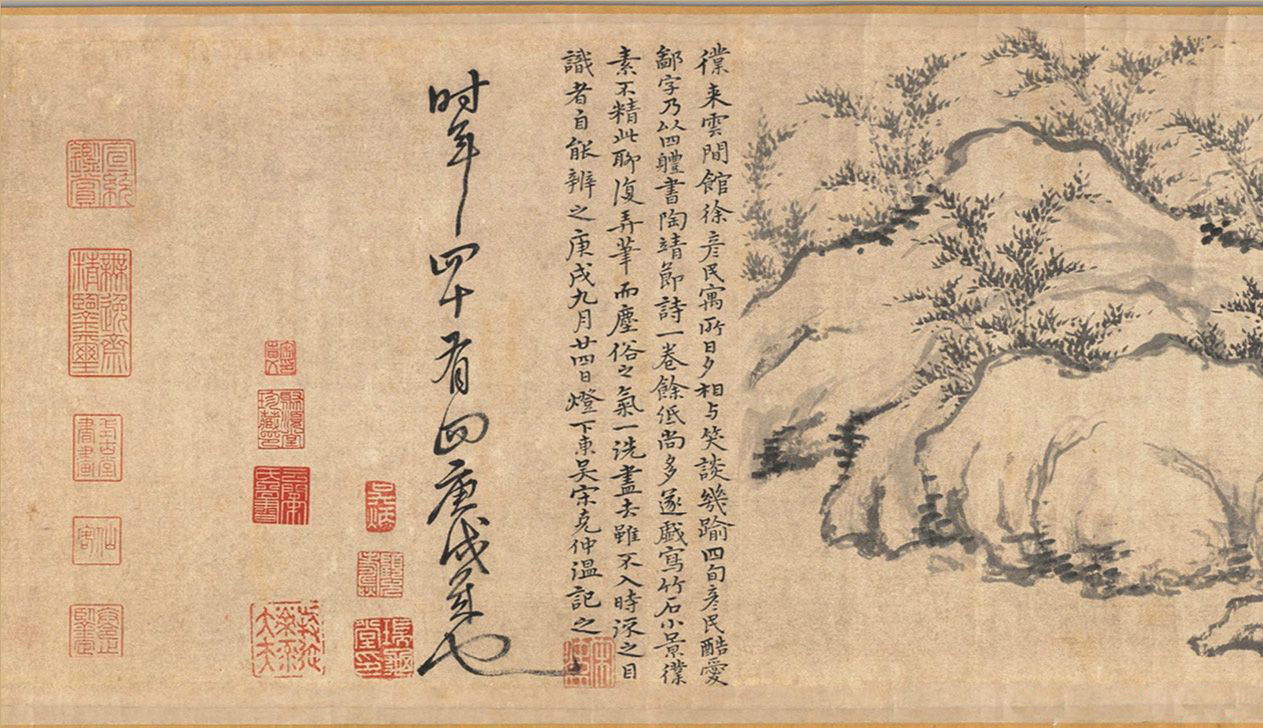 僕來雲間館徐彥民寓所日夕相与笑談幾踰四旬彥民酷愛
鄙字乃以四體書陶靖節詩一卷餘紙尚多遂戲寫竹石小景僕
素不精此聊復弄筆而塵俗之氣一洗盡去雖不入時流之目
識者自能辨之庚戌九月廿四日燈下東吳宋克仲溫記之
时年四十有四庚戌年也
宣統鑑賞
無逸齋精鑒璽
仙客